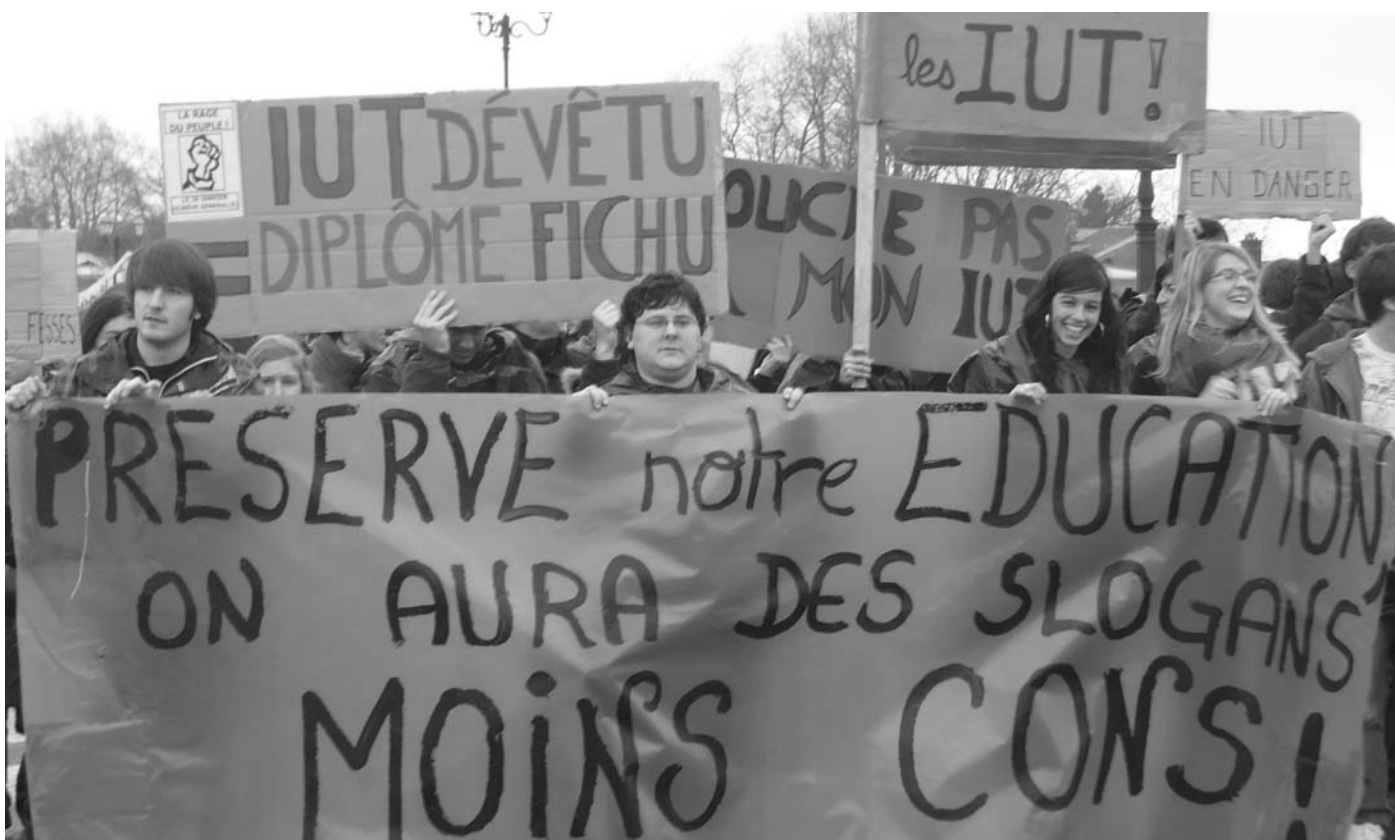 LA RAGE
DU PEUPLE !
IUT DÉVÊTU
= DIPLÔME FICHU
les IUT !
IUT
EN DANGER
PAS
MON IUT
FESSES
PRESERVE notre EDUCATION,
ON AURA DES SLOGANS
MOINS CONS !